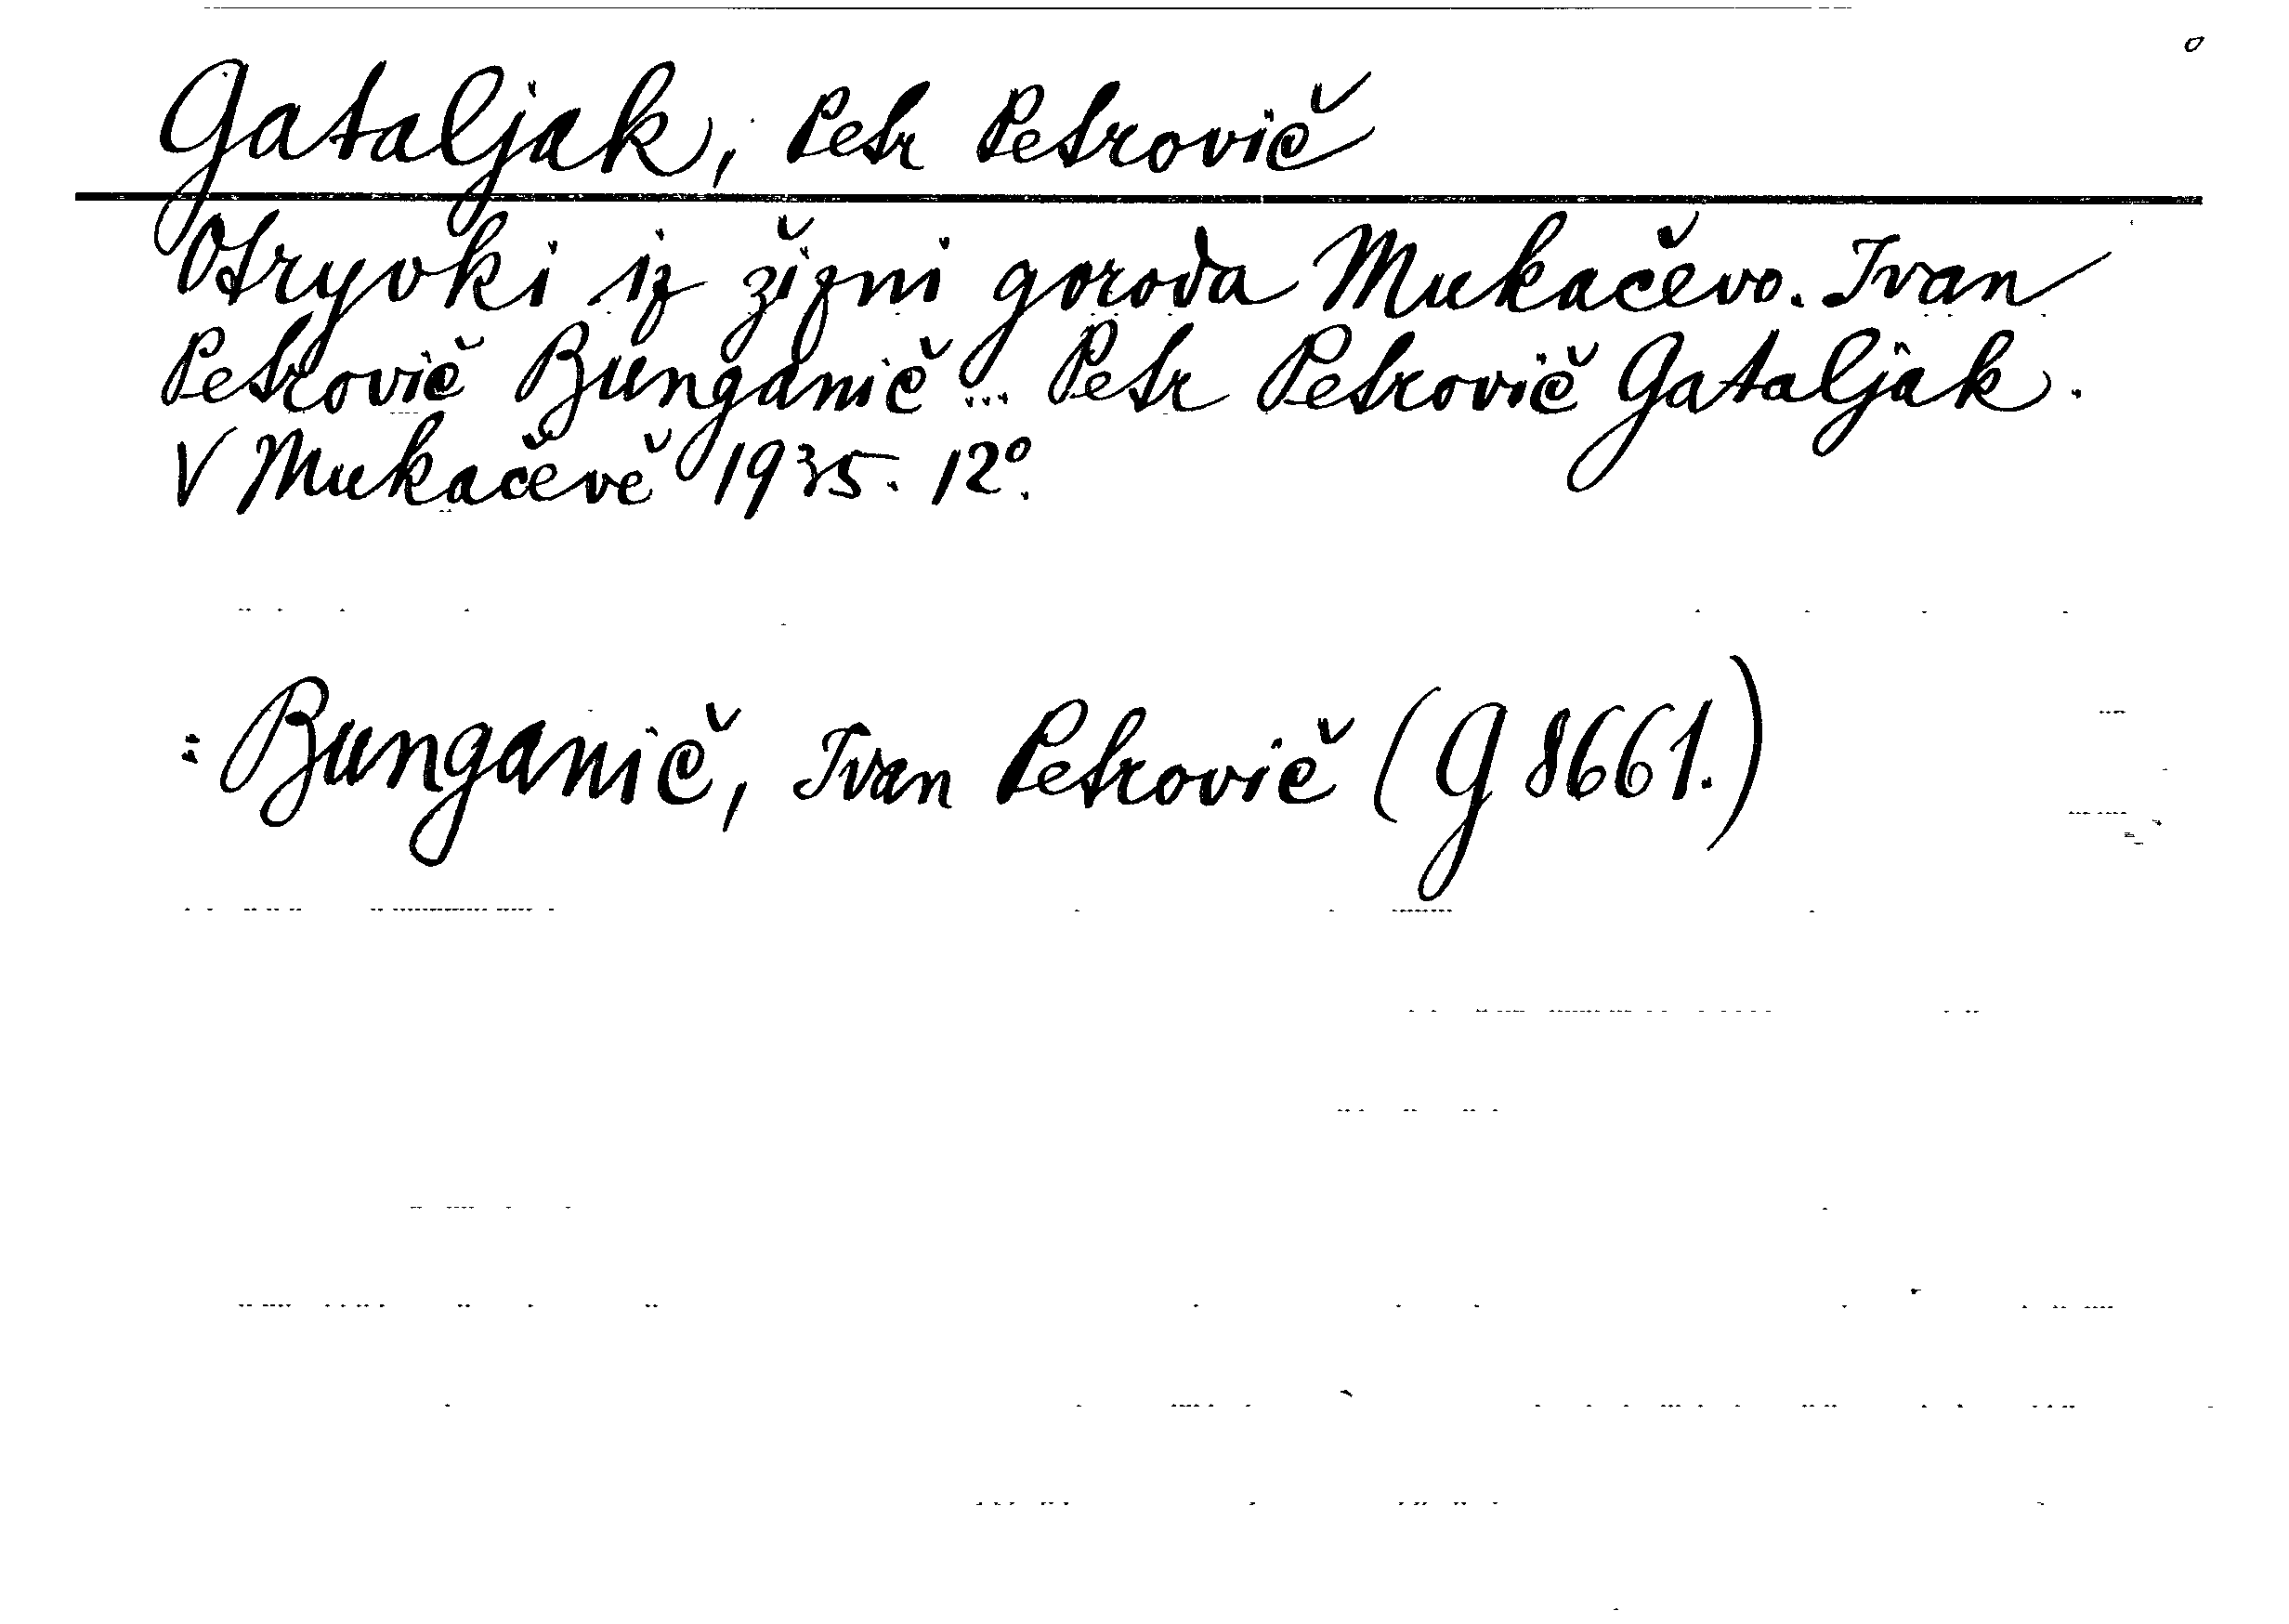 Gataljak, Petr Petrovič
Otryvki iz žizni goroda Mukačevo. Ivan
Petrovič Bunganič... Petr Petrovič Gataljak.
V Mukačevě 1935. 12°.
: Bunganič, Ivan Petrovič (G 8661.)